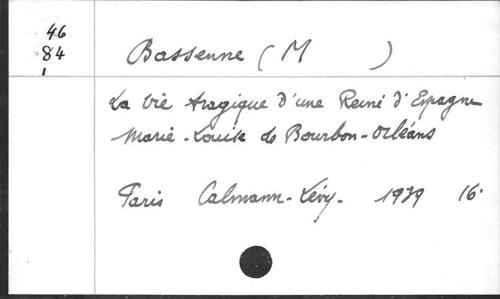 46
84
1
Bassenne (M )
La vie tragique d'une Reine d'Espagne
Marie-Louise de Bourbon-Orléans
Paris Calmann-Lévy. 1939 16°